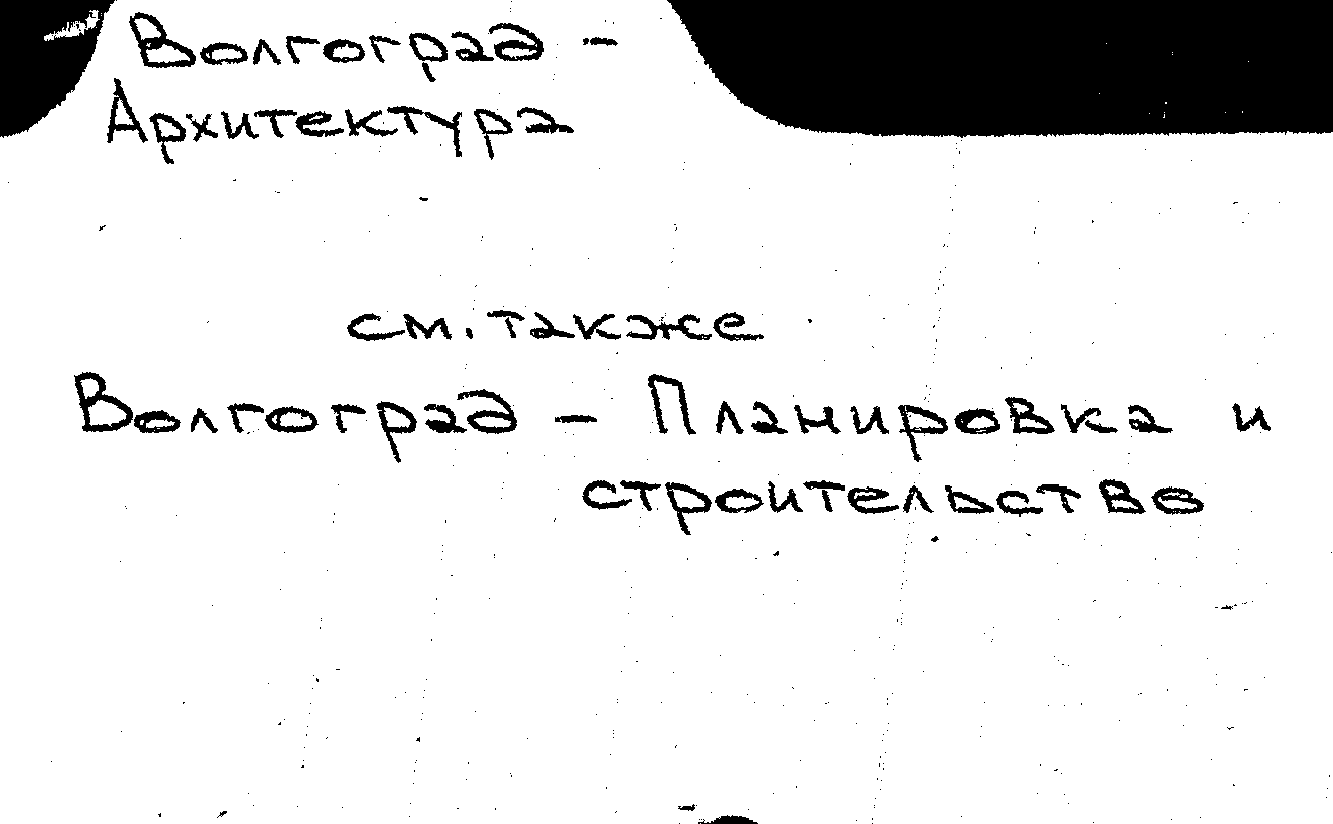 Волгоград -
Архитектура
см. также
Волгоград - Планировка и
строительство